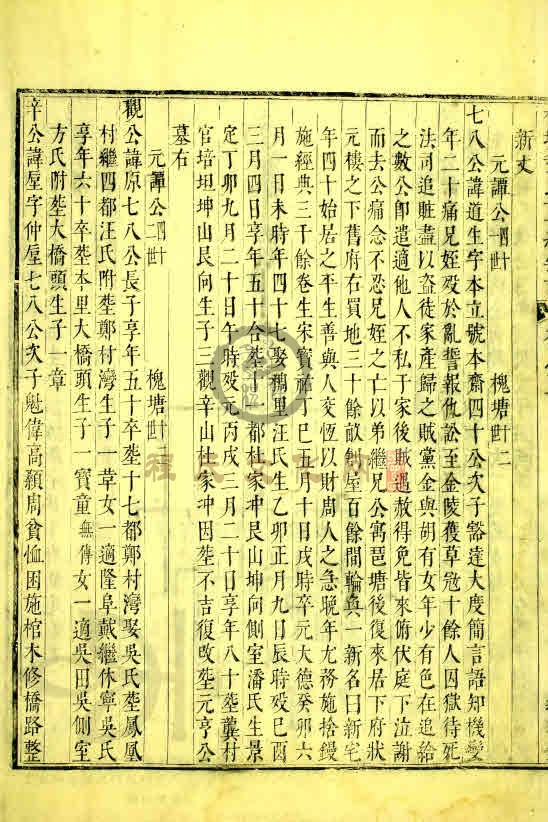 新丈
元譚公四十世　槐塘世二
七八公諱道生字本立號本齋四十公次子豁達大度簡言語知機變
年二十痛兄姪歿於亂誓報仇訟至金陵獲草寇十餘人囚獄待死
法司追賍盡以盜徒家產歸之賊黨金與胡有女年少有色在追給
之數公卽遣適他人不私于家後賊遇赦得免皆來俯伏庭下泣謝
而去公痛念不忍兄姪之亡以弟繼兄公寓琶塘後復來居下府狀
元樓之下舊府右買地三十餘畝剏屋百餘間輪奐一新名曰新宅
年四十始居之平生善與人交恆以財周人之急晚年尤務施捨鏝
施經典三千餘卷生宋寶祐丁巳五月十日戌時卒元大德癸卯六
月一日未時年四十七娶稠里汪氏生乙卯正月九日辰時歿己酉
三月四日享年五十合塟十一都杜家冲艮山坤向側室潘氏生景
定丁卯九月二十日午時歿元丙戌三月二十日享年八十塟龔村
官培坦坤山艮向生子三觀辛山杜家冲因塟不吉復改塟元亨公
墓右
元譚公四十一世　槐塘世三
觀公諱原七八公長子享年五十卒塟十七都鄭村灣娶吳氏塟鳳凰
村繼四都汪氏附塟鄭村灣生子一華女一適隆阜戴繼休寧吳氏
享年六十卒塟本里大橋頭生子一寶童無傳女一適吳田吳側室
方氏附塟大橋頭生子一章
辛公諱垕字仲垕七八公次子魁偉高顙周貧恤困施棺木修橋路整
程氏文化网